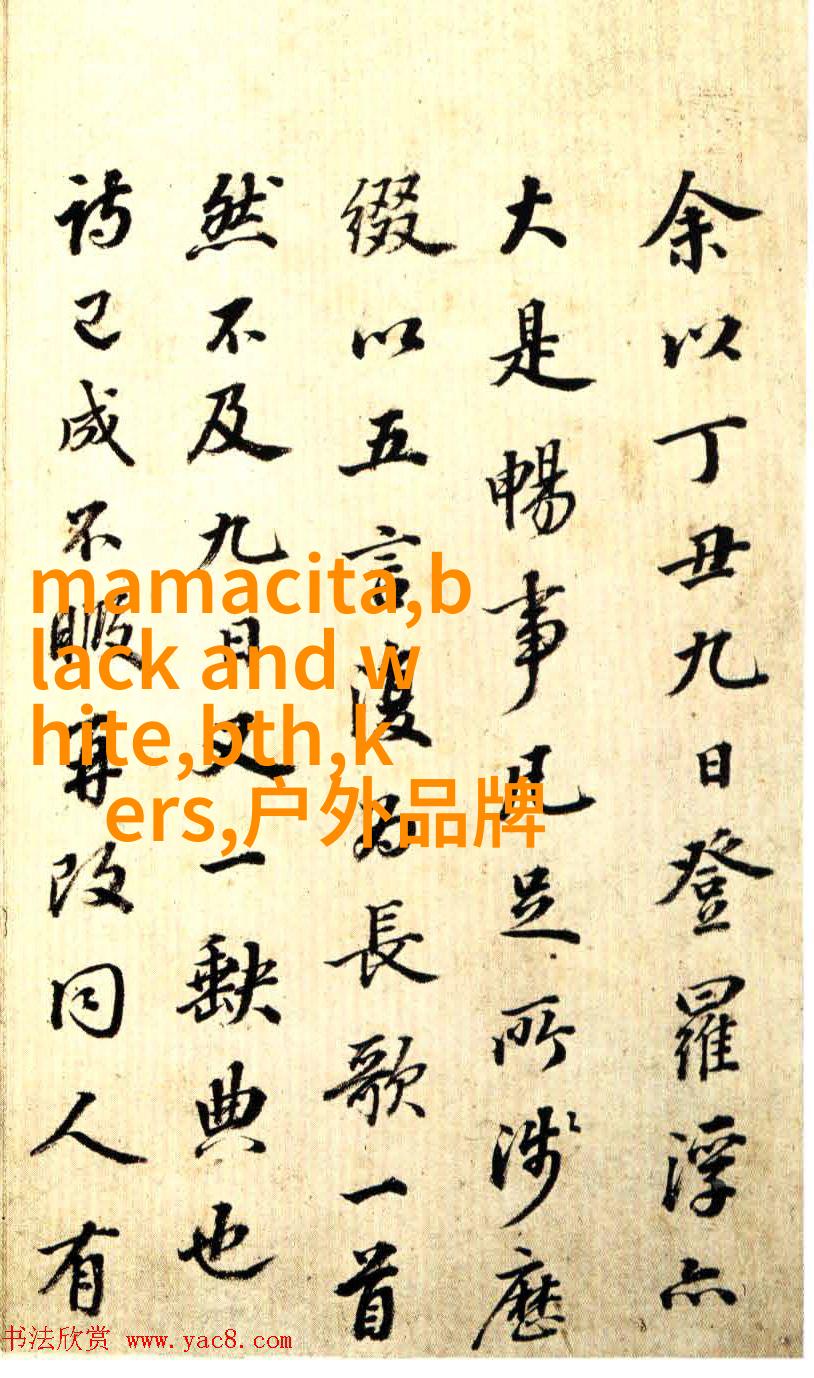 余以丁丑九日登羅浮亦
大是暢事凡足所涉歷
綴以五言復為長歌一首
然不及九日又一缺典也
詩已成不暇再改同人有
mamacita,b
lack and w
hite,bth,k
ers,户外品牌
书法欣赏 www.yac8.com